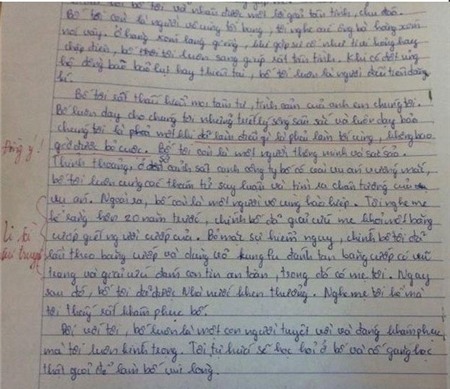 với bố tôi và nhận được một lời giải tận tình, chu đáo.
Bố tôi còn là người vô cùng tốt bụng, tôi nghe các ông bà hàng xóm
nói vậy. Ở hàng xóm láng giềng, khi gặp sự cố như tivi hỏng hay
chập điện, bố tôi luôn sang giúp rất tận tình. Khi có đợt ủng
hộ đồng bào bão lụt hay thiên tai, bố tôi luôn là người đầu tiên đóng
Bố tôi rất thấu hiểu mọi tâm tư, tình cảm của anh em chúng tôi.
Bố luôn dạy cho chúng tôi những triết lý sống sâu sắc và luôn dạy bảo
chúng tôi là phải một khi đã làm điều gì là phải làm tới cùng, không bao
giờ được bỏ cuộc. Bố tôi còn là một người thông minh và sắc sảo.
Đồng ý!
Thỉnh thoảng, ở cảnh sát công ty bố có các vụ án vướng mắc,
bố tôi luôn cùng các thám tử suy luận và tìm ra chân tướng của
vụ án. Ngoài ra, bố còn là một người vô cùng hào hiệp. Tôi nghe mẹ
kể rằng hơn 20 năm trước, chính bố đã giải cứu mẹ khỏi một băng
cướp giết người cướp của. Bỏ mặc sự hiểm nguy, chính bố tôi đã
lần theo băng cướp và dùng võ kungfu đánh tan băng cướp có vũ
trang và giải cứu đám con tin an toàn, trong đó có mẹ tôi. Ngay
sau đó, bố tôi đã được Nhà nước khen thưởng. Nghe mẹ tôi kể mà
tôi thấy rất khâm phục bố.
Đối với tôi, bố luôn là một con người tuyệt vời và đáng khâm phục
mà tôi luôn kính trọng. Tôi tự hứa sẽ học hỏi ở bố và cố gắng học
thật giỏi để làm bố vui lòng.